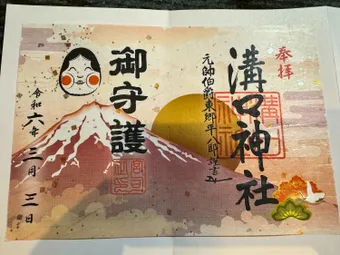 奉拝
溝口神社
元帥伯爵東郷平八郎謹書
御守護
令和六年二月三日